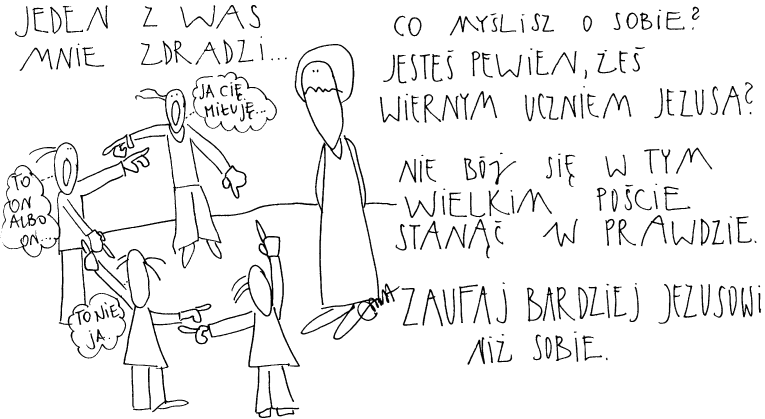 JEDEN Z WAS
MNIE ZDRADZI...
JA CIĘ
MIŁUJĘ...
TO
ON
ALBO
ON...
TO NIE
JA.
CO MYŚLISZ O SOBIE?
JESTEŚ PEWIEN, ŻEŚ
WIERNYM UCZNIEM JEZUSA?
NIE BÓJ SIĘ W TYM
WIELKIM POŚCIE
STANĄĆ W PRAWDZIE.
ZAUFAJ BARDZIEJ JEZUSOWI
NIŻ SOBIE.